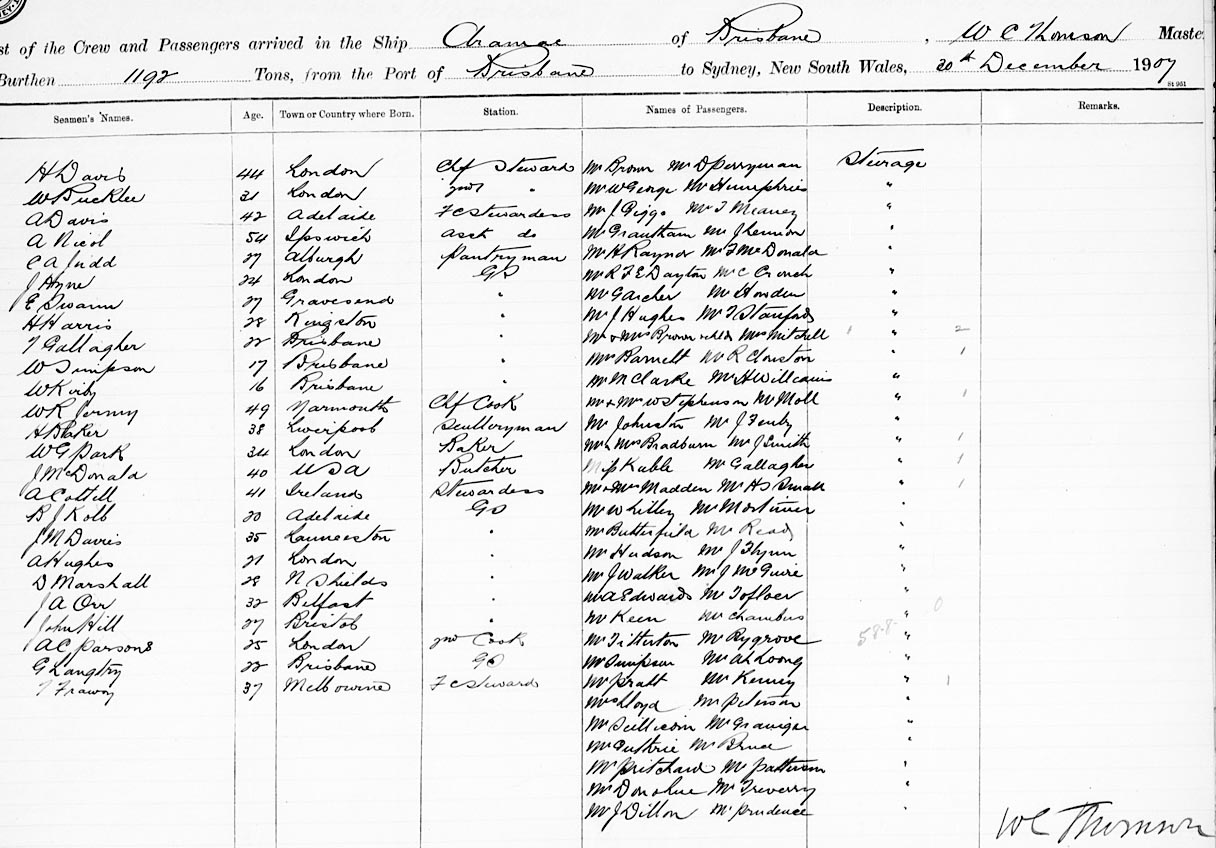 st of the Crew and Passengers arrived in the Ship Aramac of Brisbane, W C Thomson Maste
Burthen 1192 Tons, from the Port of Brisbane to Sydney, New South Wales, 20th December 1907
St 951
Seamen's Names. Age. Town or Country where Born. Station. Names of Passengers. Description. Remarks.
H Davis 44 London Chf Steward Mr Brown Mr D Perryman Steerage
W Bucklee 31 London 2nd " Mr W George Mr Humphries "
A Davis 42 Adelaide F C Stewardess Mr J Giggs Mr T Meaney "
A Nicol 54 Ipswich Asst do Mr Grantham Mr J Lennon "
C A Judd 27 Alburgh Pantryman Mr H Raynor Mr F McDonald "
J Hyne 24 London GS Mr R F E Dayton Mr C Crouch "
E Swann 27 Gravesend " Mr Garcher Mr Howden "
H Harris 28 Kingston " Mr J Hughes Mr T Stanford "
T Gallagher 22 Brisbane " Mr & Mrs Brown & chld Mrs Mitchell " 2
W Simpson 17 Brisbane " Mrs Barnett Mr R Clouston " 1
W Kirby 16 Brisbane " Mr M Clarke Mr H Williams "
W R Jermy 49 Yarmouth Chf Cook Mr & Mrs W Stephenson Mr Moll " 1
H Baker 38 Liverpool Sculleryman Mr Johnston Mr J Fenby "
W G Park 34 London Baker Mr & Mrs Bradburn Mr J Smith " 1
J McDonald 40 USA Butcher Miss Kable Mr Gallagher " 1
A Cottell 41 Ireland Stewardess Mr & Mrs Madden Mr H S Small " 1
B J Kolb 20 Adelaide GS Mr W Lilley Mr Mortimer "
J M Davis 35 Launceston " Mr Butterfield Mr Ready "
A Hughes 21 London " Mr Hudson Mr J Flynn "
D Marshall 28 N Shields " Mr J Walker Mr J McGuire "
J A Orr 32 Belfast " Mr A Edwards Mr "
John Hill 27 Bristol " Mr Keen Mr Chambers " 0
A C Parsons 25 London 2nd Cook Mr Titterton Mr Rygrove 588 "
G Langtry 22 Brisbane GS Mr Simpson Mr Ah Loong "
T 37 Melbourne F C Steward Mr Pratt Mr Kenney " 1
Mrs Lloyd Mr Peterson "
Mr Mr "
Mr Guthrie Mr Bruce "
Mr Pritchard Mr Patterson "
Mr Donohue Mr Treverry "
Mr J Dillon Mr Prudence "
W C Thomson